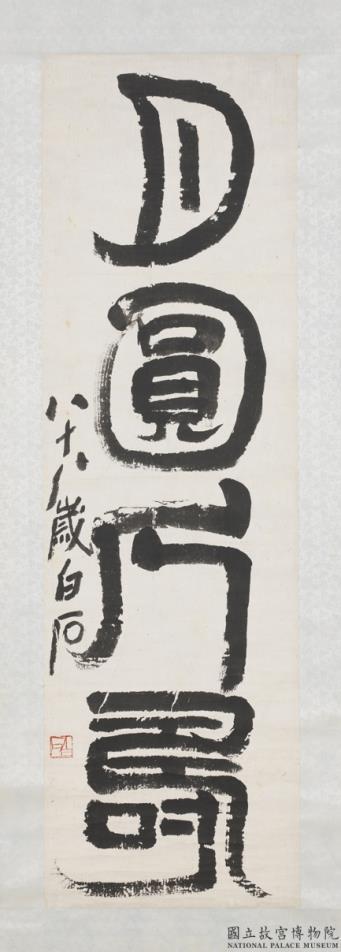 月圓人壽
八十八歲白石
國立故宮博物院
NATIONAL PALACE MUSEUM